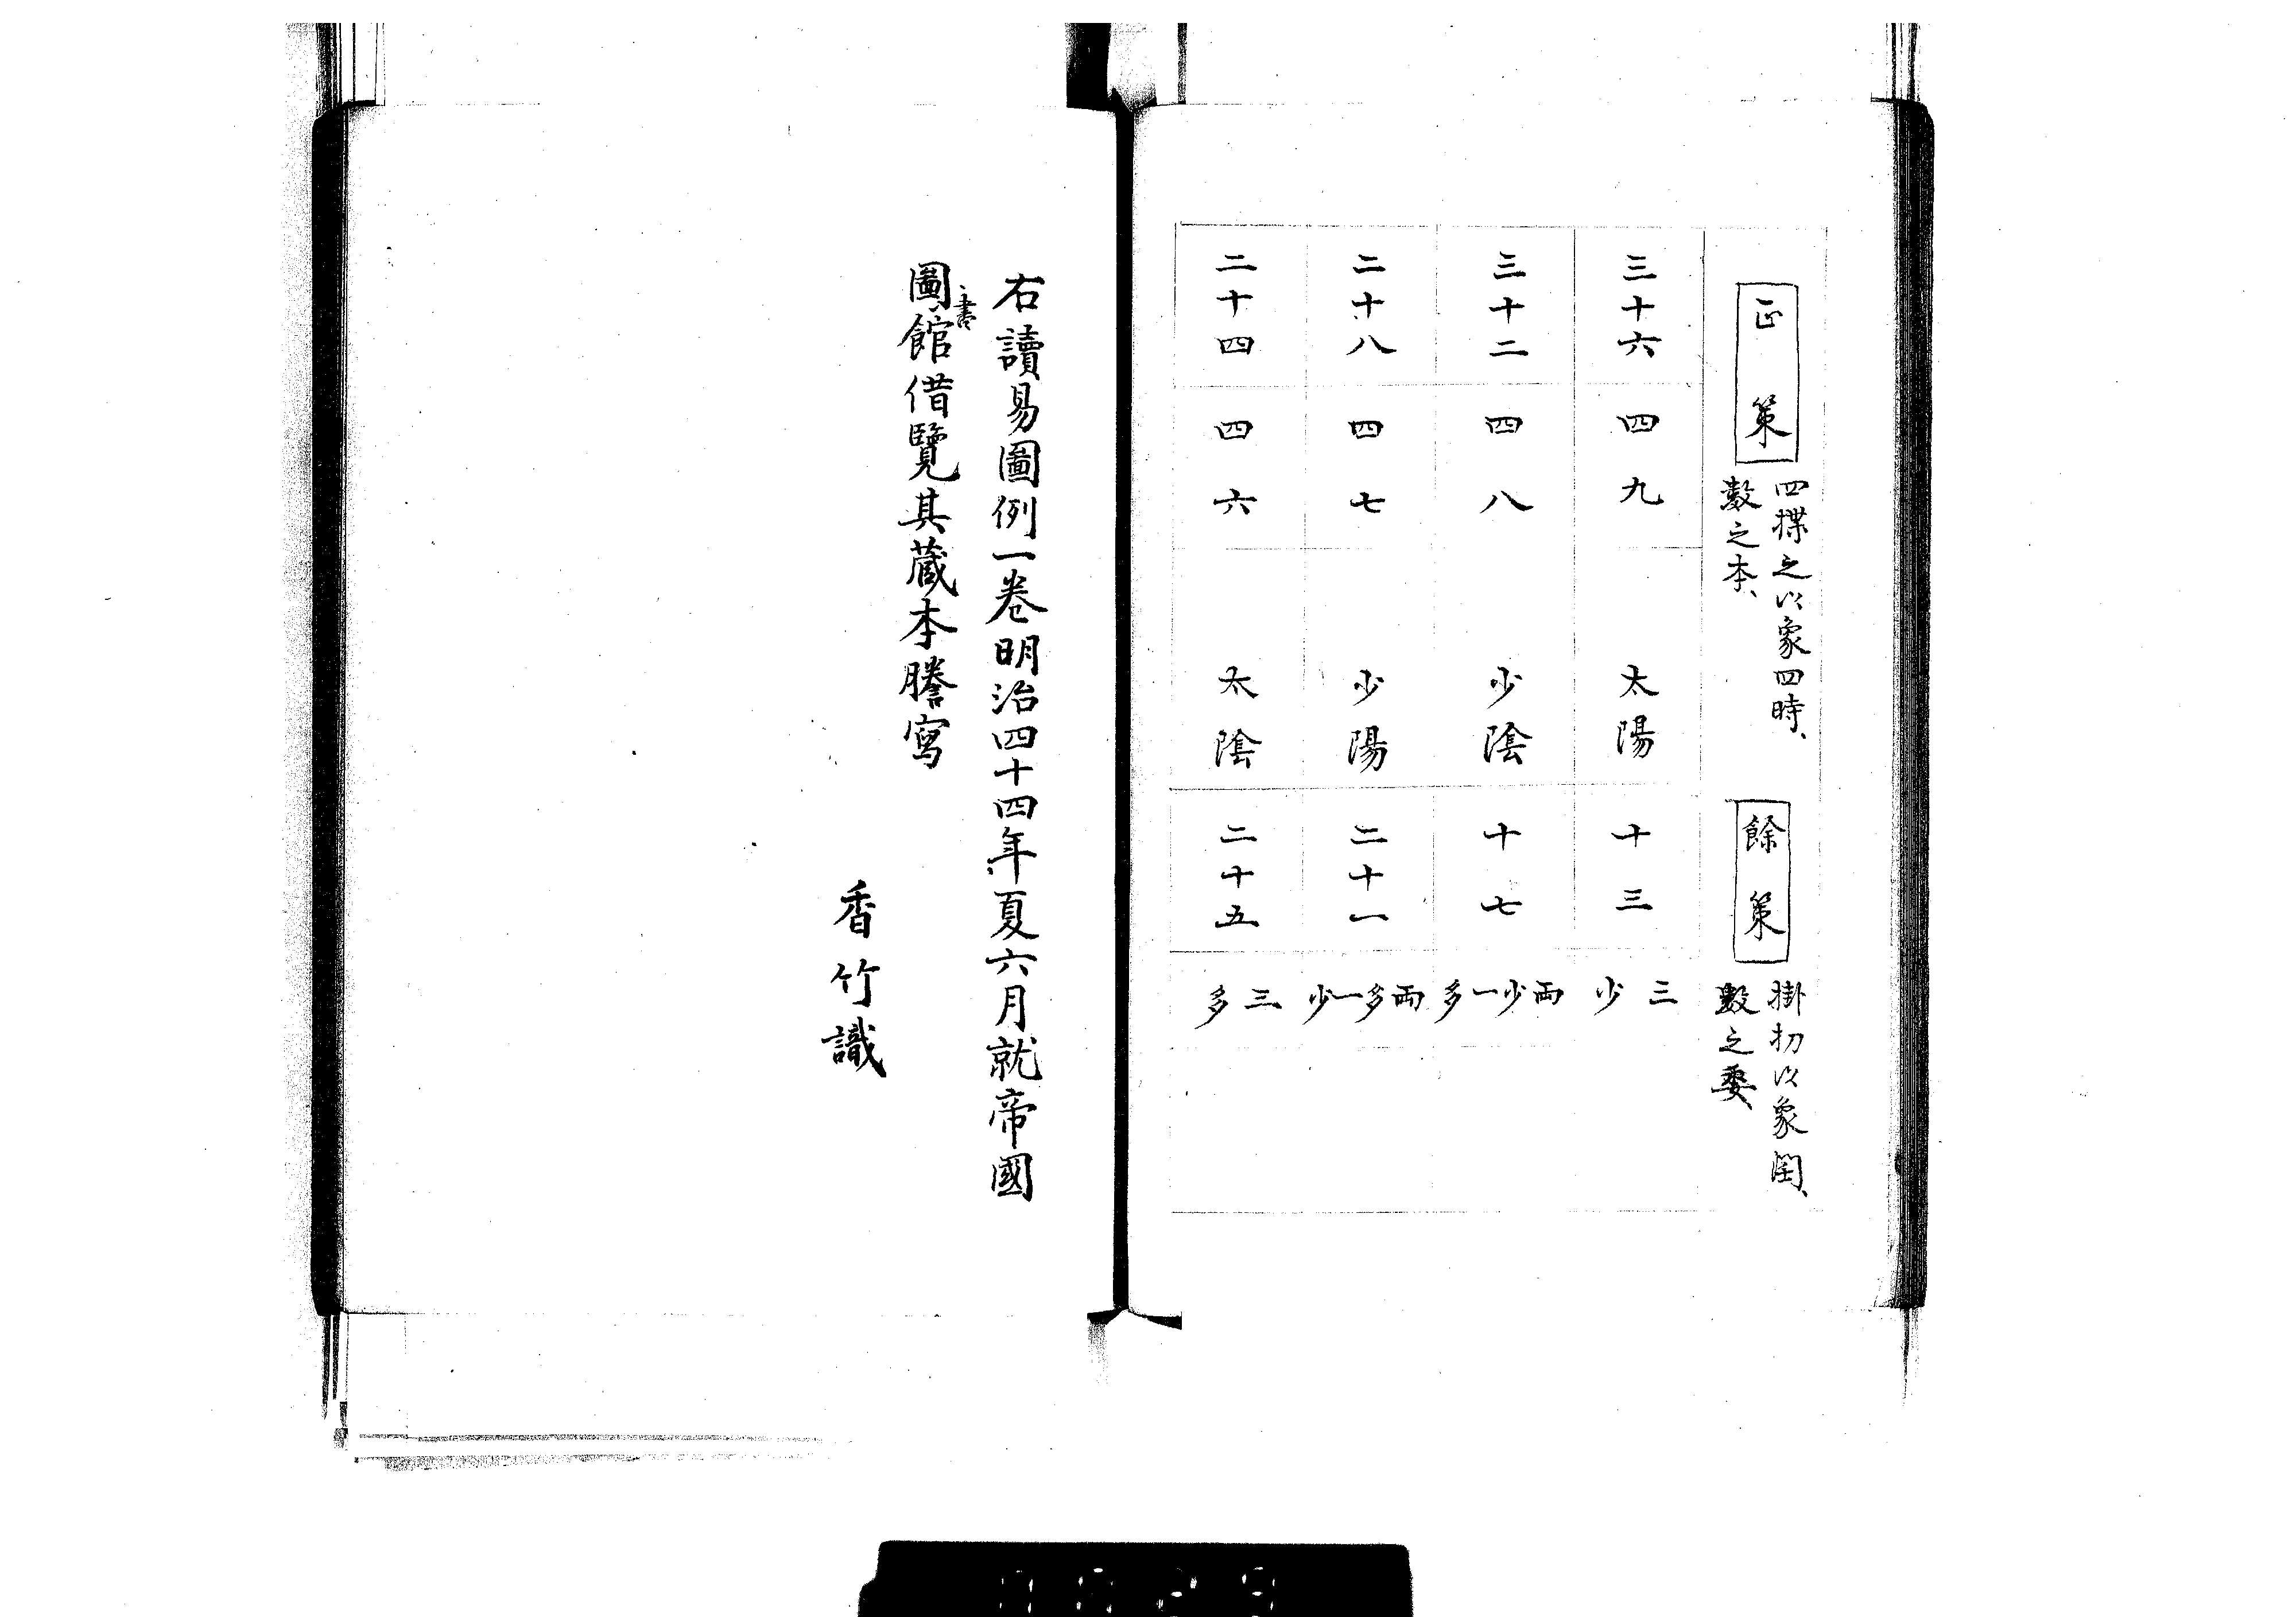 正策
四揲之以象四時、
數之本、
餘策
掛扐以象閏、
數之委、
三十六
四九
太陽
十三
三少
三十二
四八
少陰
十七
兩少一多
二十八
四七
少陽
二十一
兩多一少
二十四
四六
太陰
二十五
三多
右讀易圖例一卷明治四十四年夏六月就帝國
圖書館借覽其藏本謄寫
香竹識